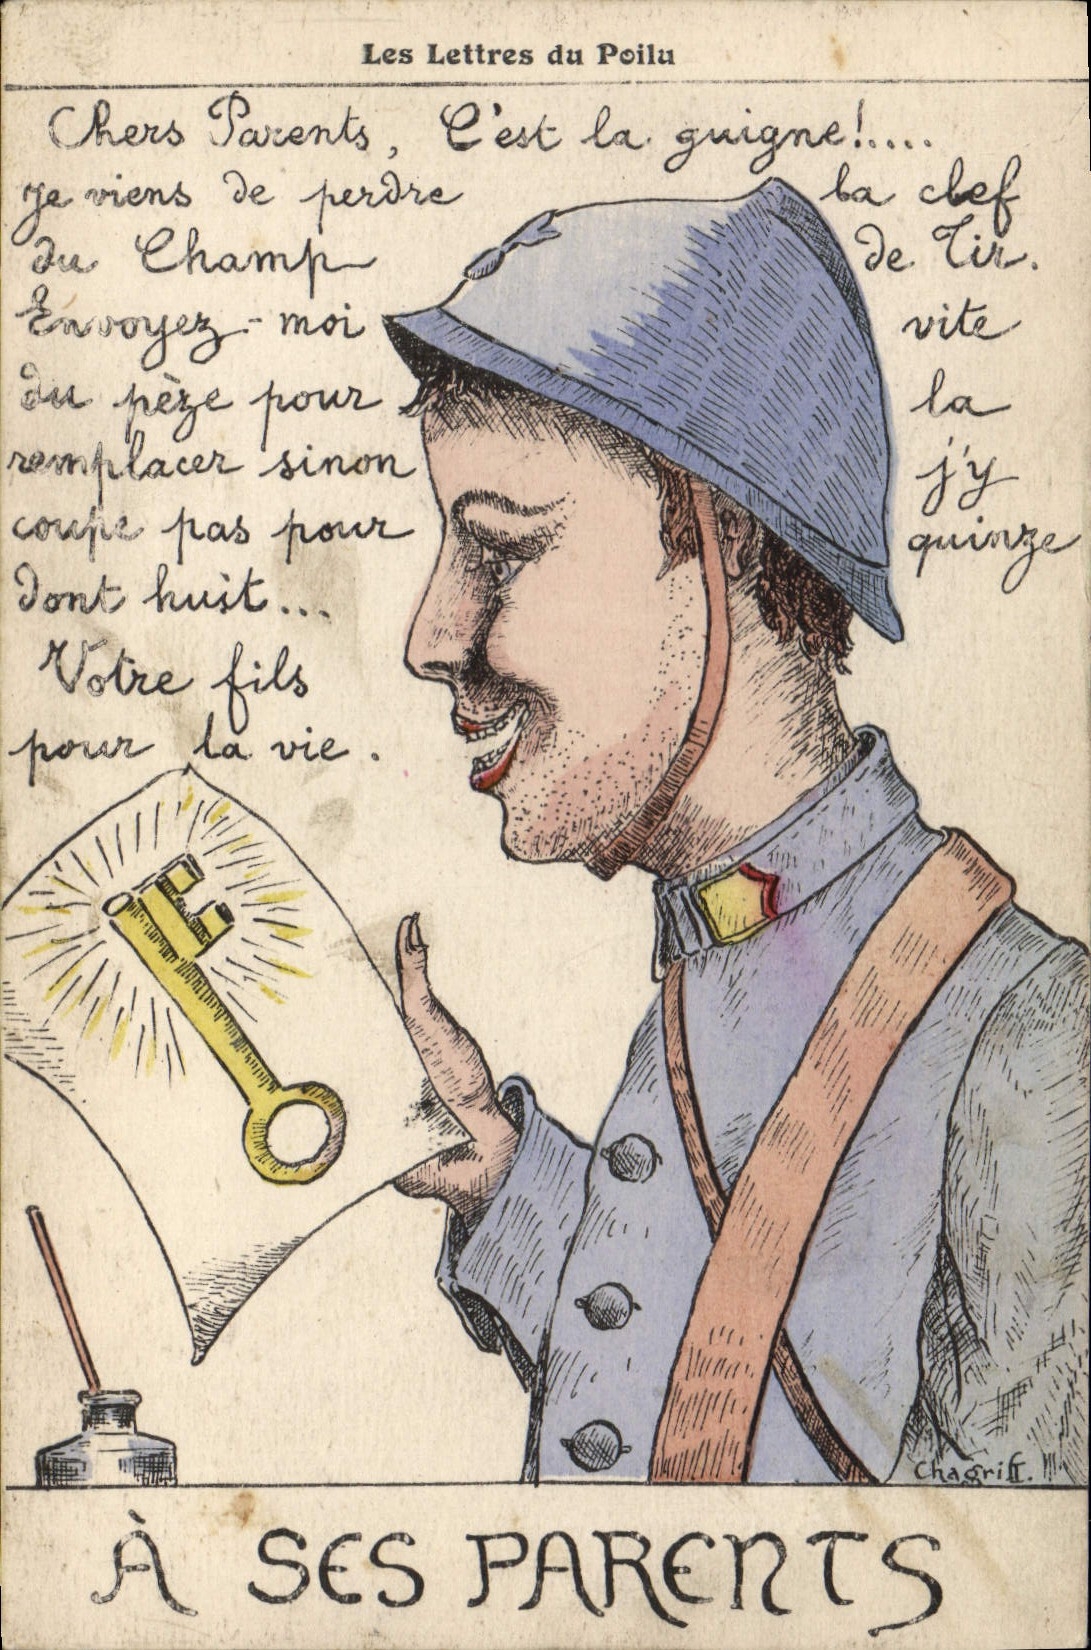 Les Lettres du Poilu
Chers Parents, C'est la guigne!.....
Je viens de perdre la clef
du Champ de Tir.
Envoyez-moi vite
du pèze pour la
remplacer sinon j'y
coupe pas pour quinze
dont huit...
Votre fils
pour la vie.
Chagriff.
À SES PARENTS